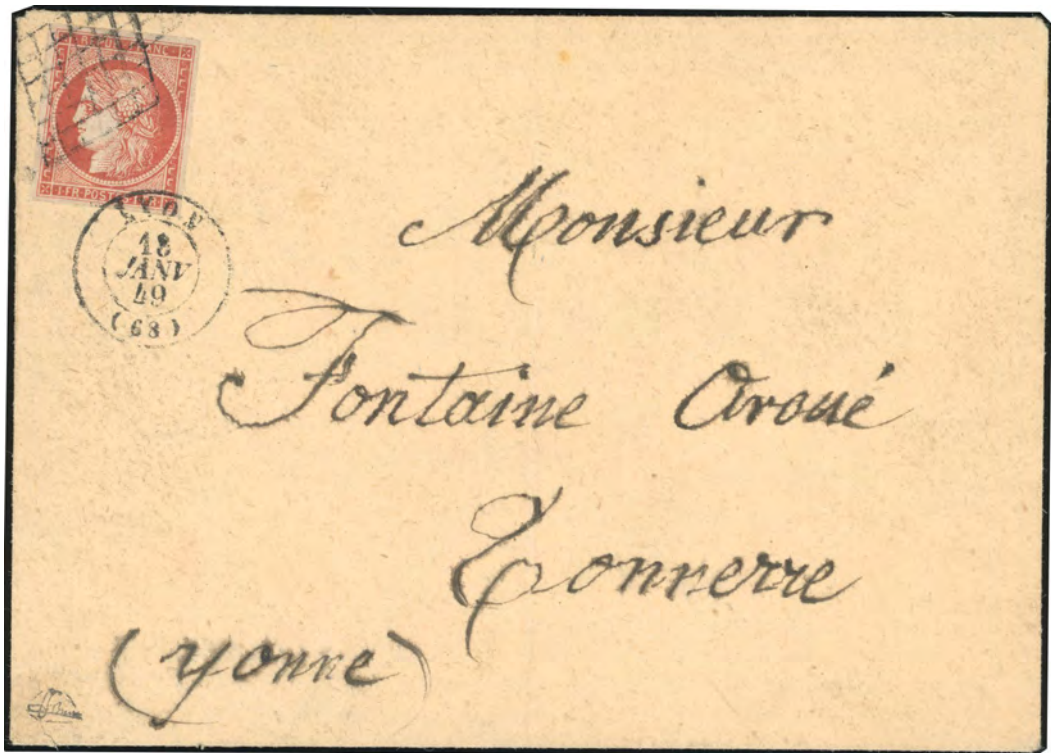 FRANC
1 FR · POSTES · 1 FR
LYON
18
JANV
49
(68)
Monsieur
Fontaine Avoué
Tonnerre
(yonne)